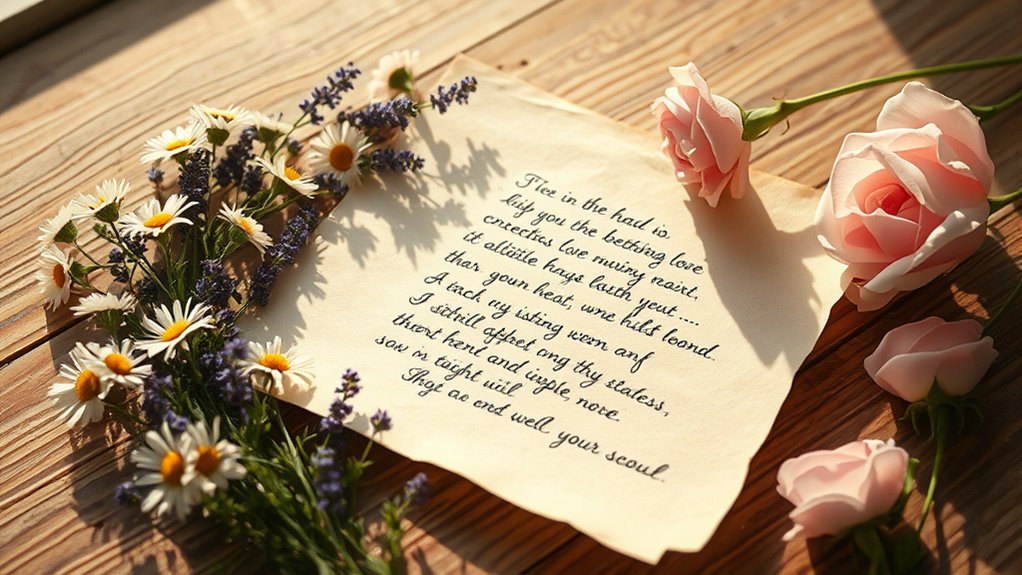 Flex in the had is
kify you the bething love
cnrectios love muriny mairt,
it altiitle hays lasth yeut....
thar youn heat, wne hilst loond.
A each my isting worn anf
I sitrill affret ong thy staless,
thrort hent and iwsple, nore.
sow in taight wiil
Shgt ao end well, your scoul.